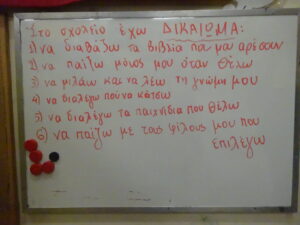 Στο σχολείο έχω ΔΙΚΑΙΩΜΑ:
1) να διαβάζω τα βιβλία που μου αρέσουν
2) να παίζω μόνος μου όταν θέλω
3) να μιλάω και να λέω τη γνώμη μου
4) να διαλέγω πού να κάτσω
5) να διαλέγω τα παιχνίδια που θέλω
6) να παίζω με τους φίλους μου που
επιλέγω